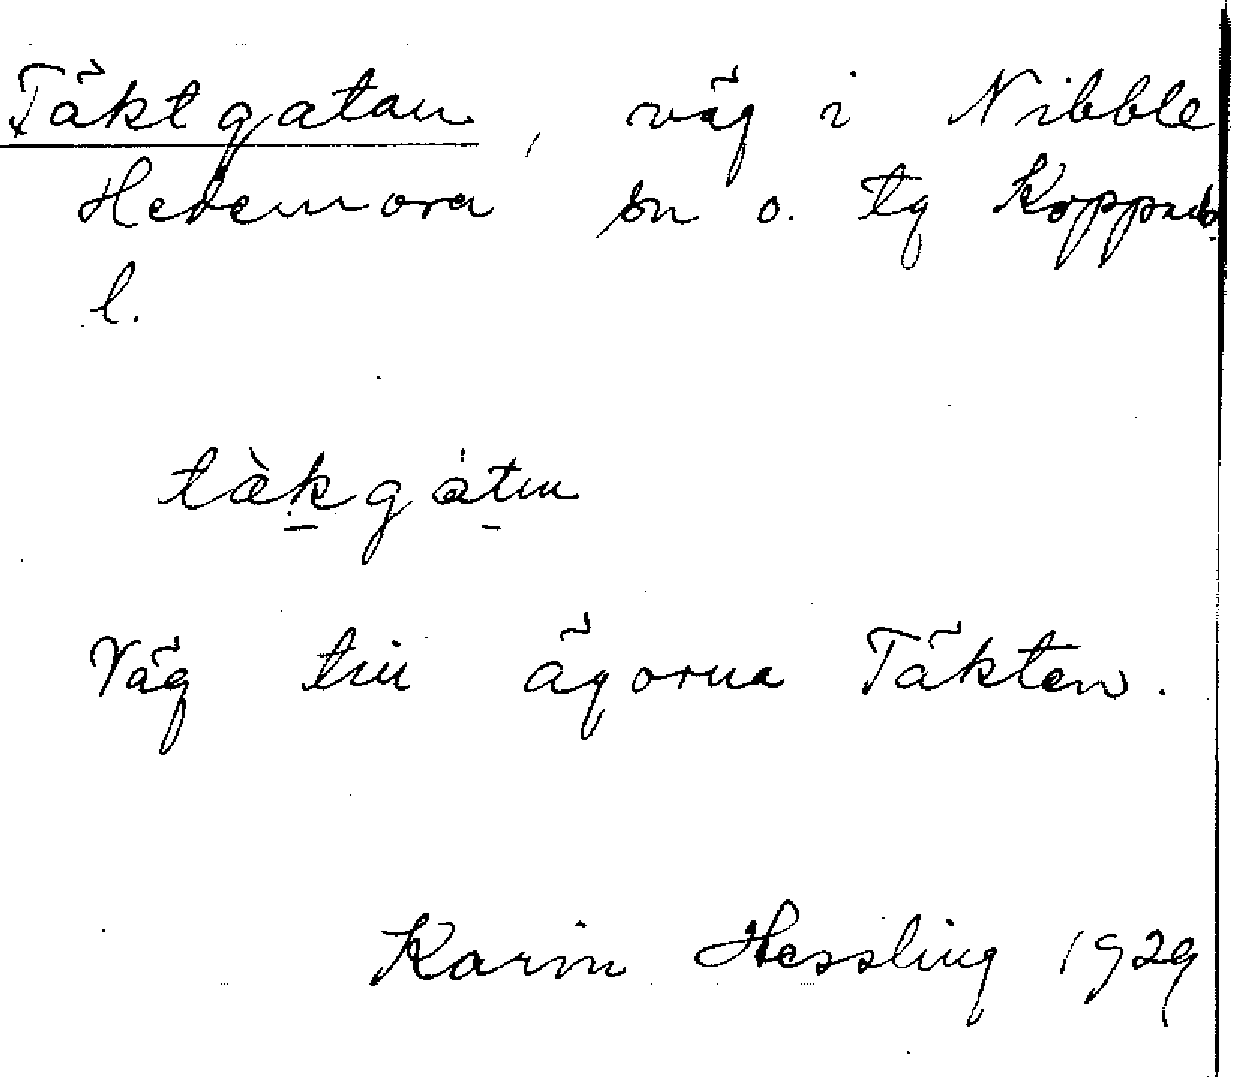 Täktgatan, väg i Nibble
Hedemora sn o. tg Kopparb.
l.
tàkgátn
Väg till ägorna Täkten.
Karin Hessling 1929